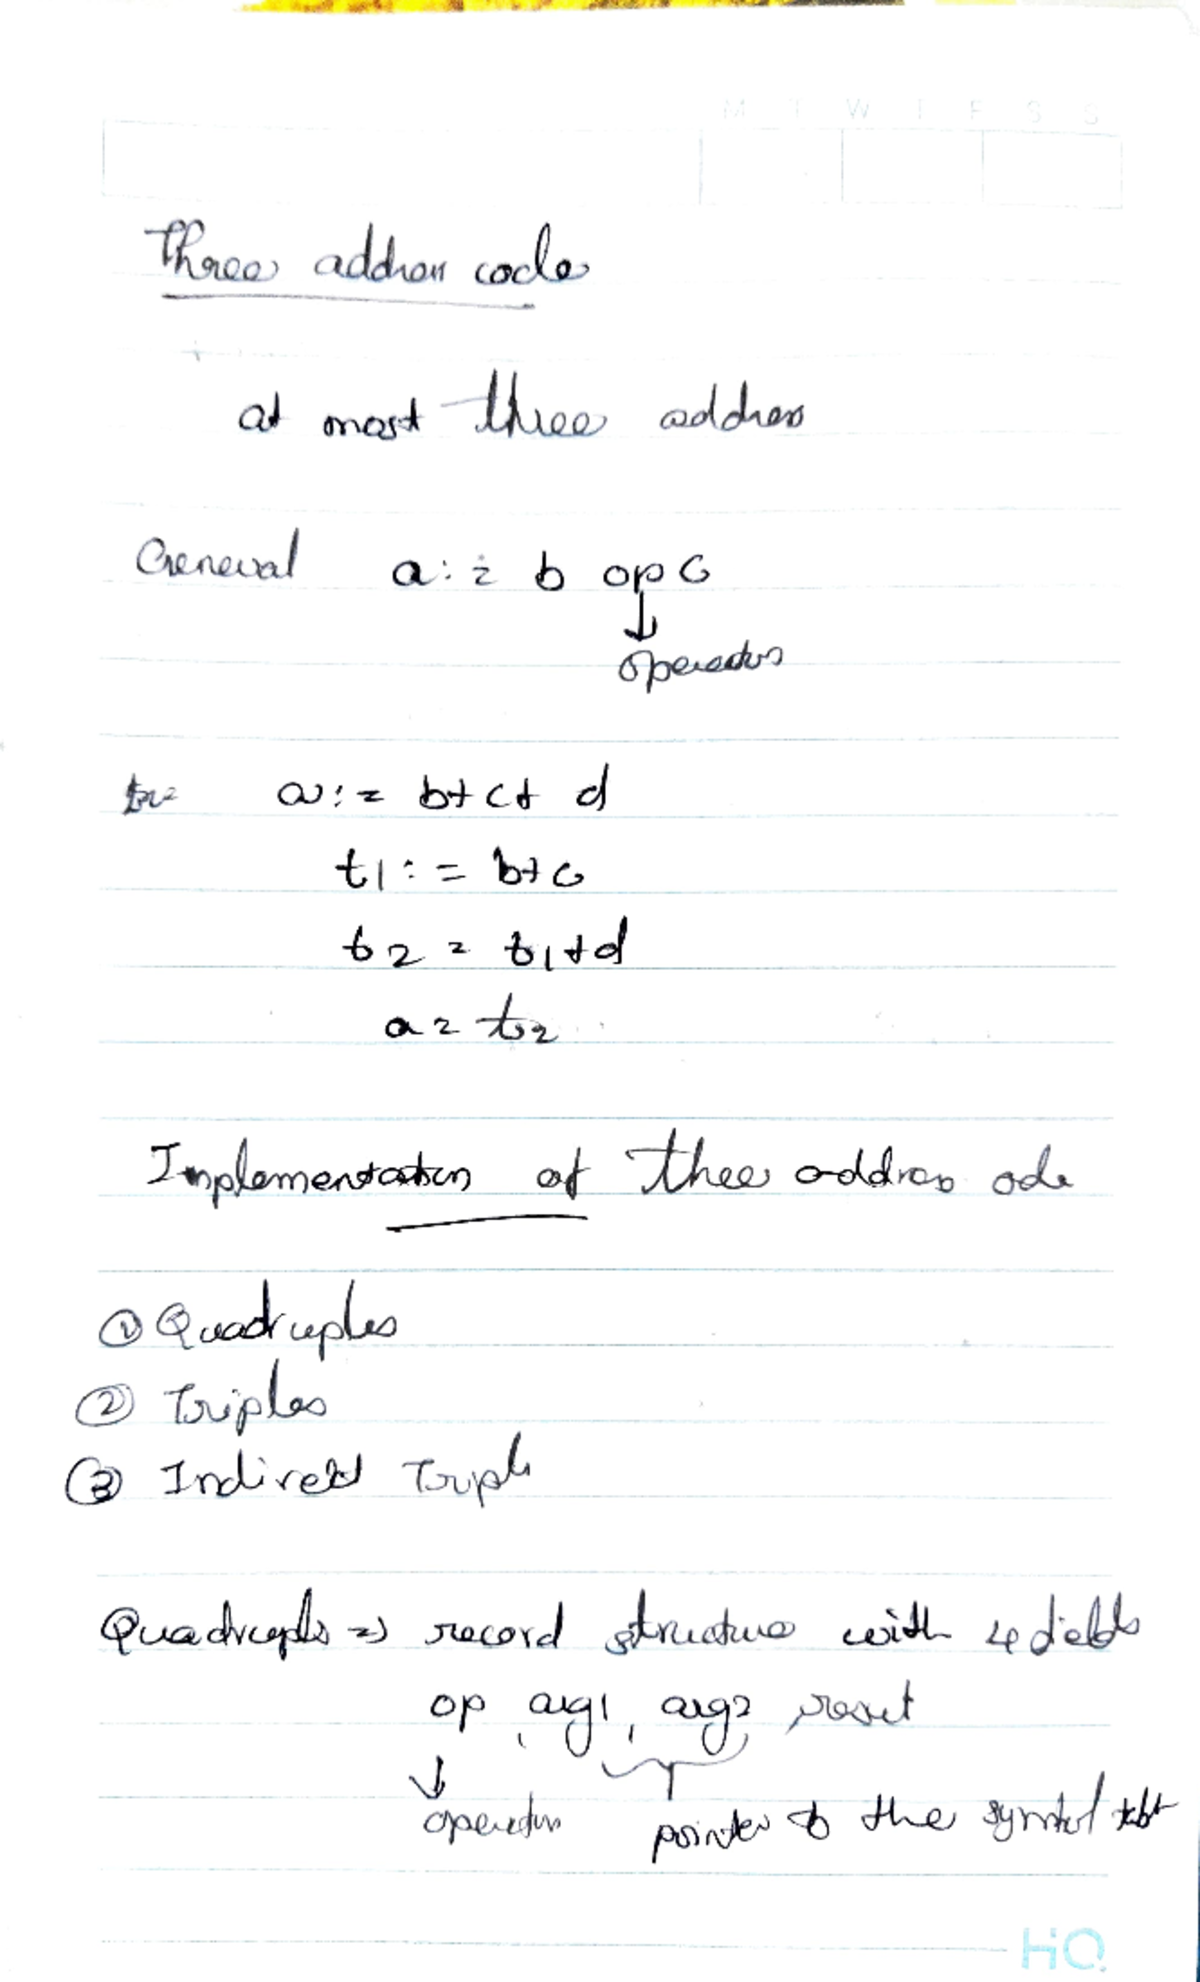 M T W T F S S
Three address code
at most three address
General a:= b op c
↓
operator
a:= b+c+ d
t1:= b+c
t2 = t1+d
a = t2
Implementation of three address code
① Quadruples
② Triples
③ Indirect Triple
Quadruples => record structure with 4 fields
op, arg1, arg2, result
↓
operator pointer to the symbol table
HQ